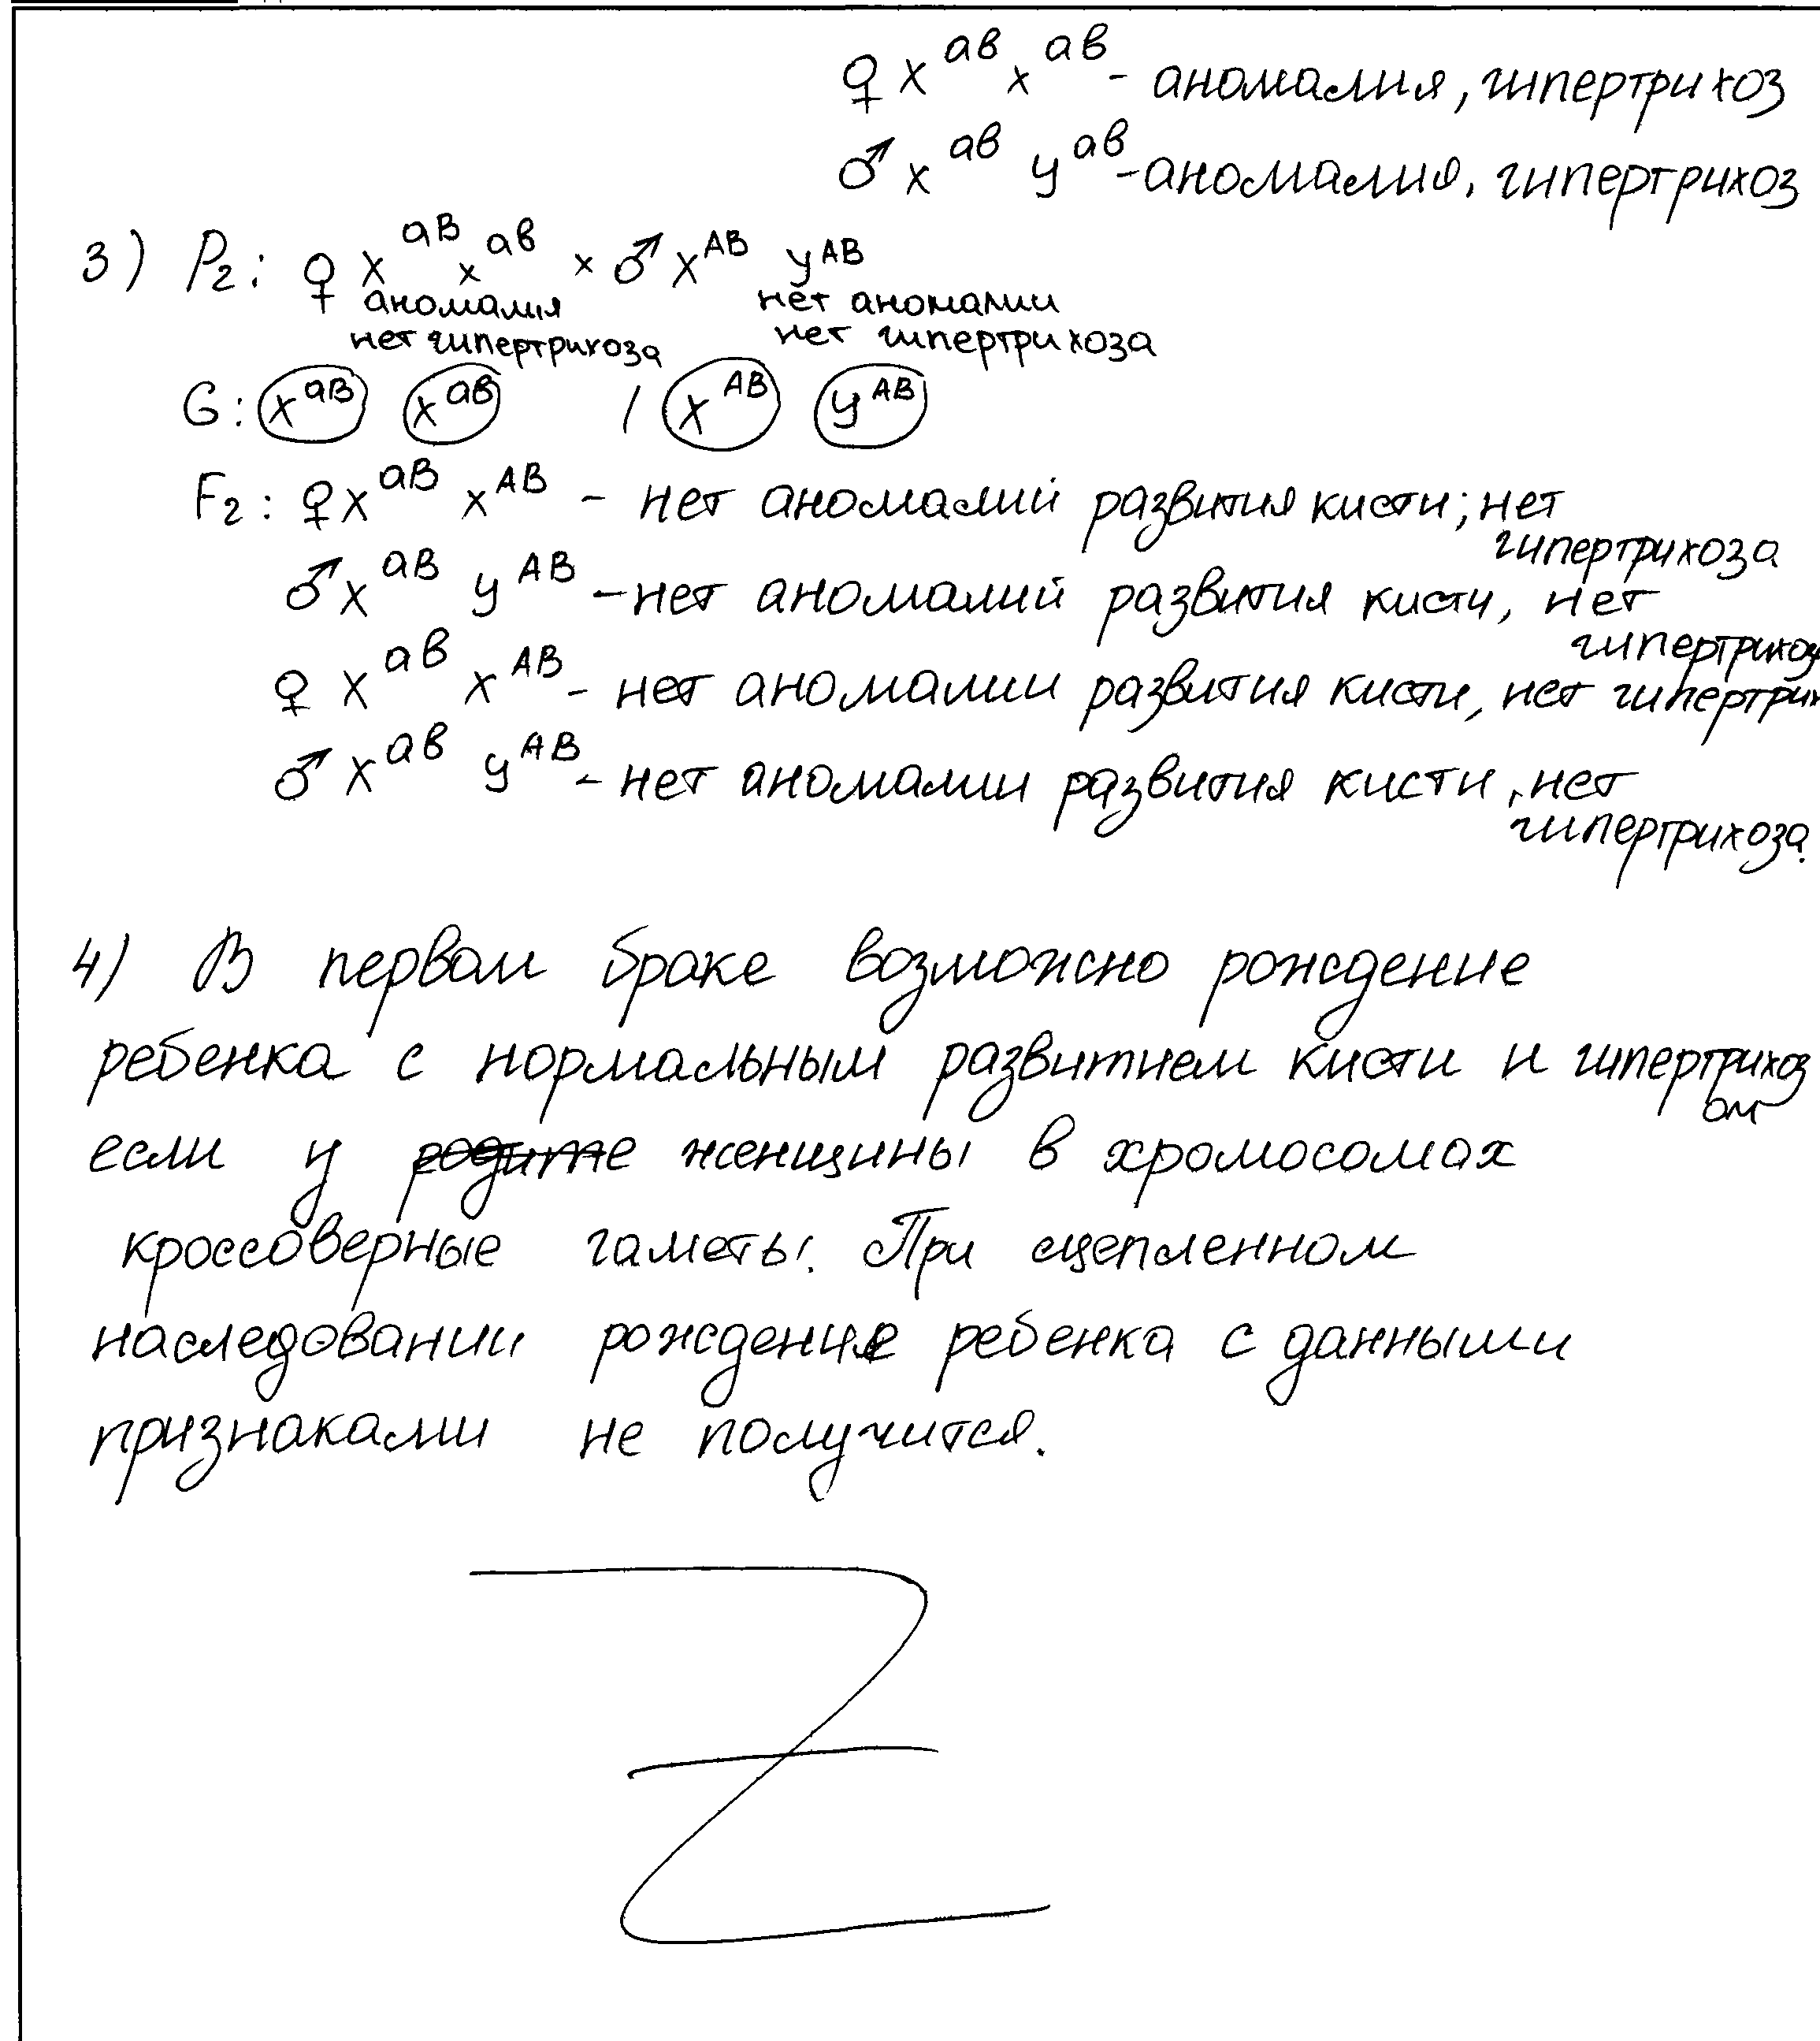 ♀ X^ав X^ав - аномалия, гипертрихоз
♂ X^ав У^ав - аномалия, гипертрихоз
3) P₂: ♀ X^аВ X^ав × ♂ X^АВ У^АВ
аномалия нет аномалии
нет гипертрихоза нет гипертрихоза
G: X^аВ X^ав / X^АВ У^АВ
F₂: ♀ X^аВ X^АВ - нет аномалий развития кисти; нет
гипертрихоза
♂ X^аВ У^АВ - нет аномалий развития кисти, нет
гипертрихоз
♀ X^ав X^АВ - нет аномалии развития кисти, нет гипертрих
♂ X^ав У^АВ - нет аномалии развития кисти, нет
гипертрихоза.
4) В первом браке возможно рождение
ребенка с нормальным развитием кисти и гипертрихоз
ом
если у женщины в хромосомах
кроссоверные гаметы. При сцепленном
наследовании рождение ребенка с данными
признаками не получится.